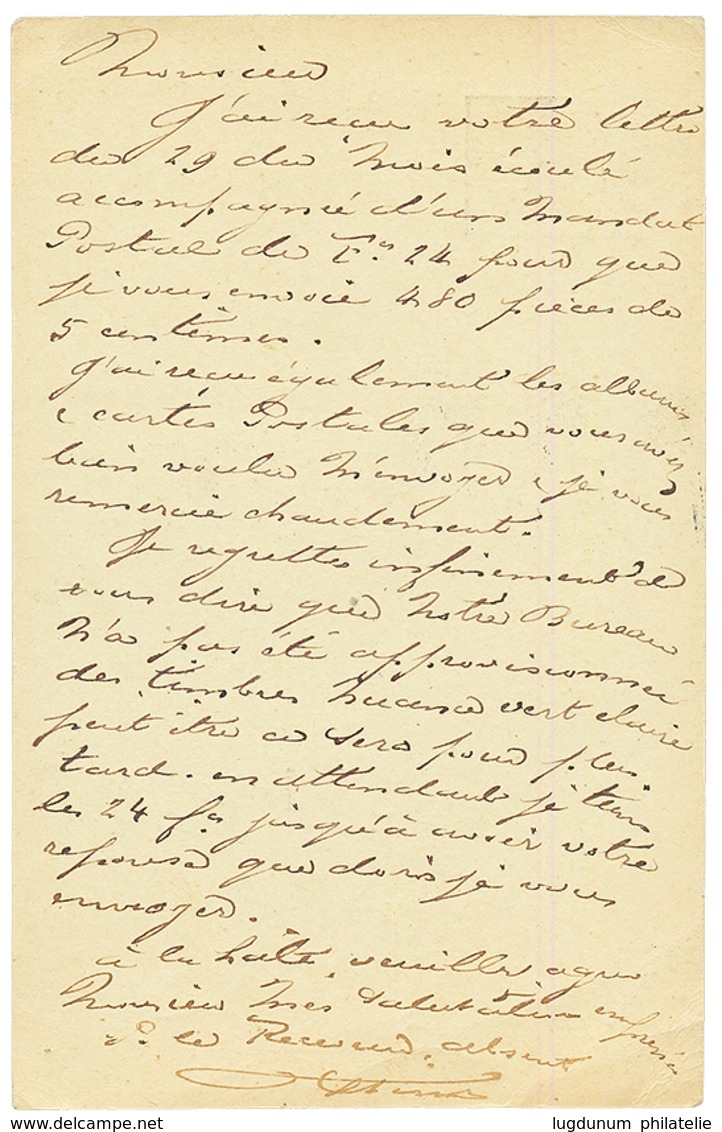 Monsieur
J'ai reçu votre lettre
du 29 du mois écoulé
accompagné d'un Mandat
Postal de Fcs 24 pour que
je vous envoie 480 pièces de
5 centimes.
J'ai reçu également les albums
cartes Postales que vous avez
bien voulu m'envoyer je vous
remercie chaudement.
Je regrette infiniment de
vous dire que notre Bureau
n'a pas été approvisionné
des timbres nuance vert claire
peut être ce sera pour plus
tard. en attendant je tiens
les 24 fcs jusqu'à avoir votre
reponse que dois je vous
envoyer.
à la hâte, veuillez agréer
Monsieur mes salutations
P. le Receveur, absent
lugdunum philatelie